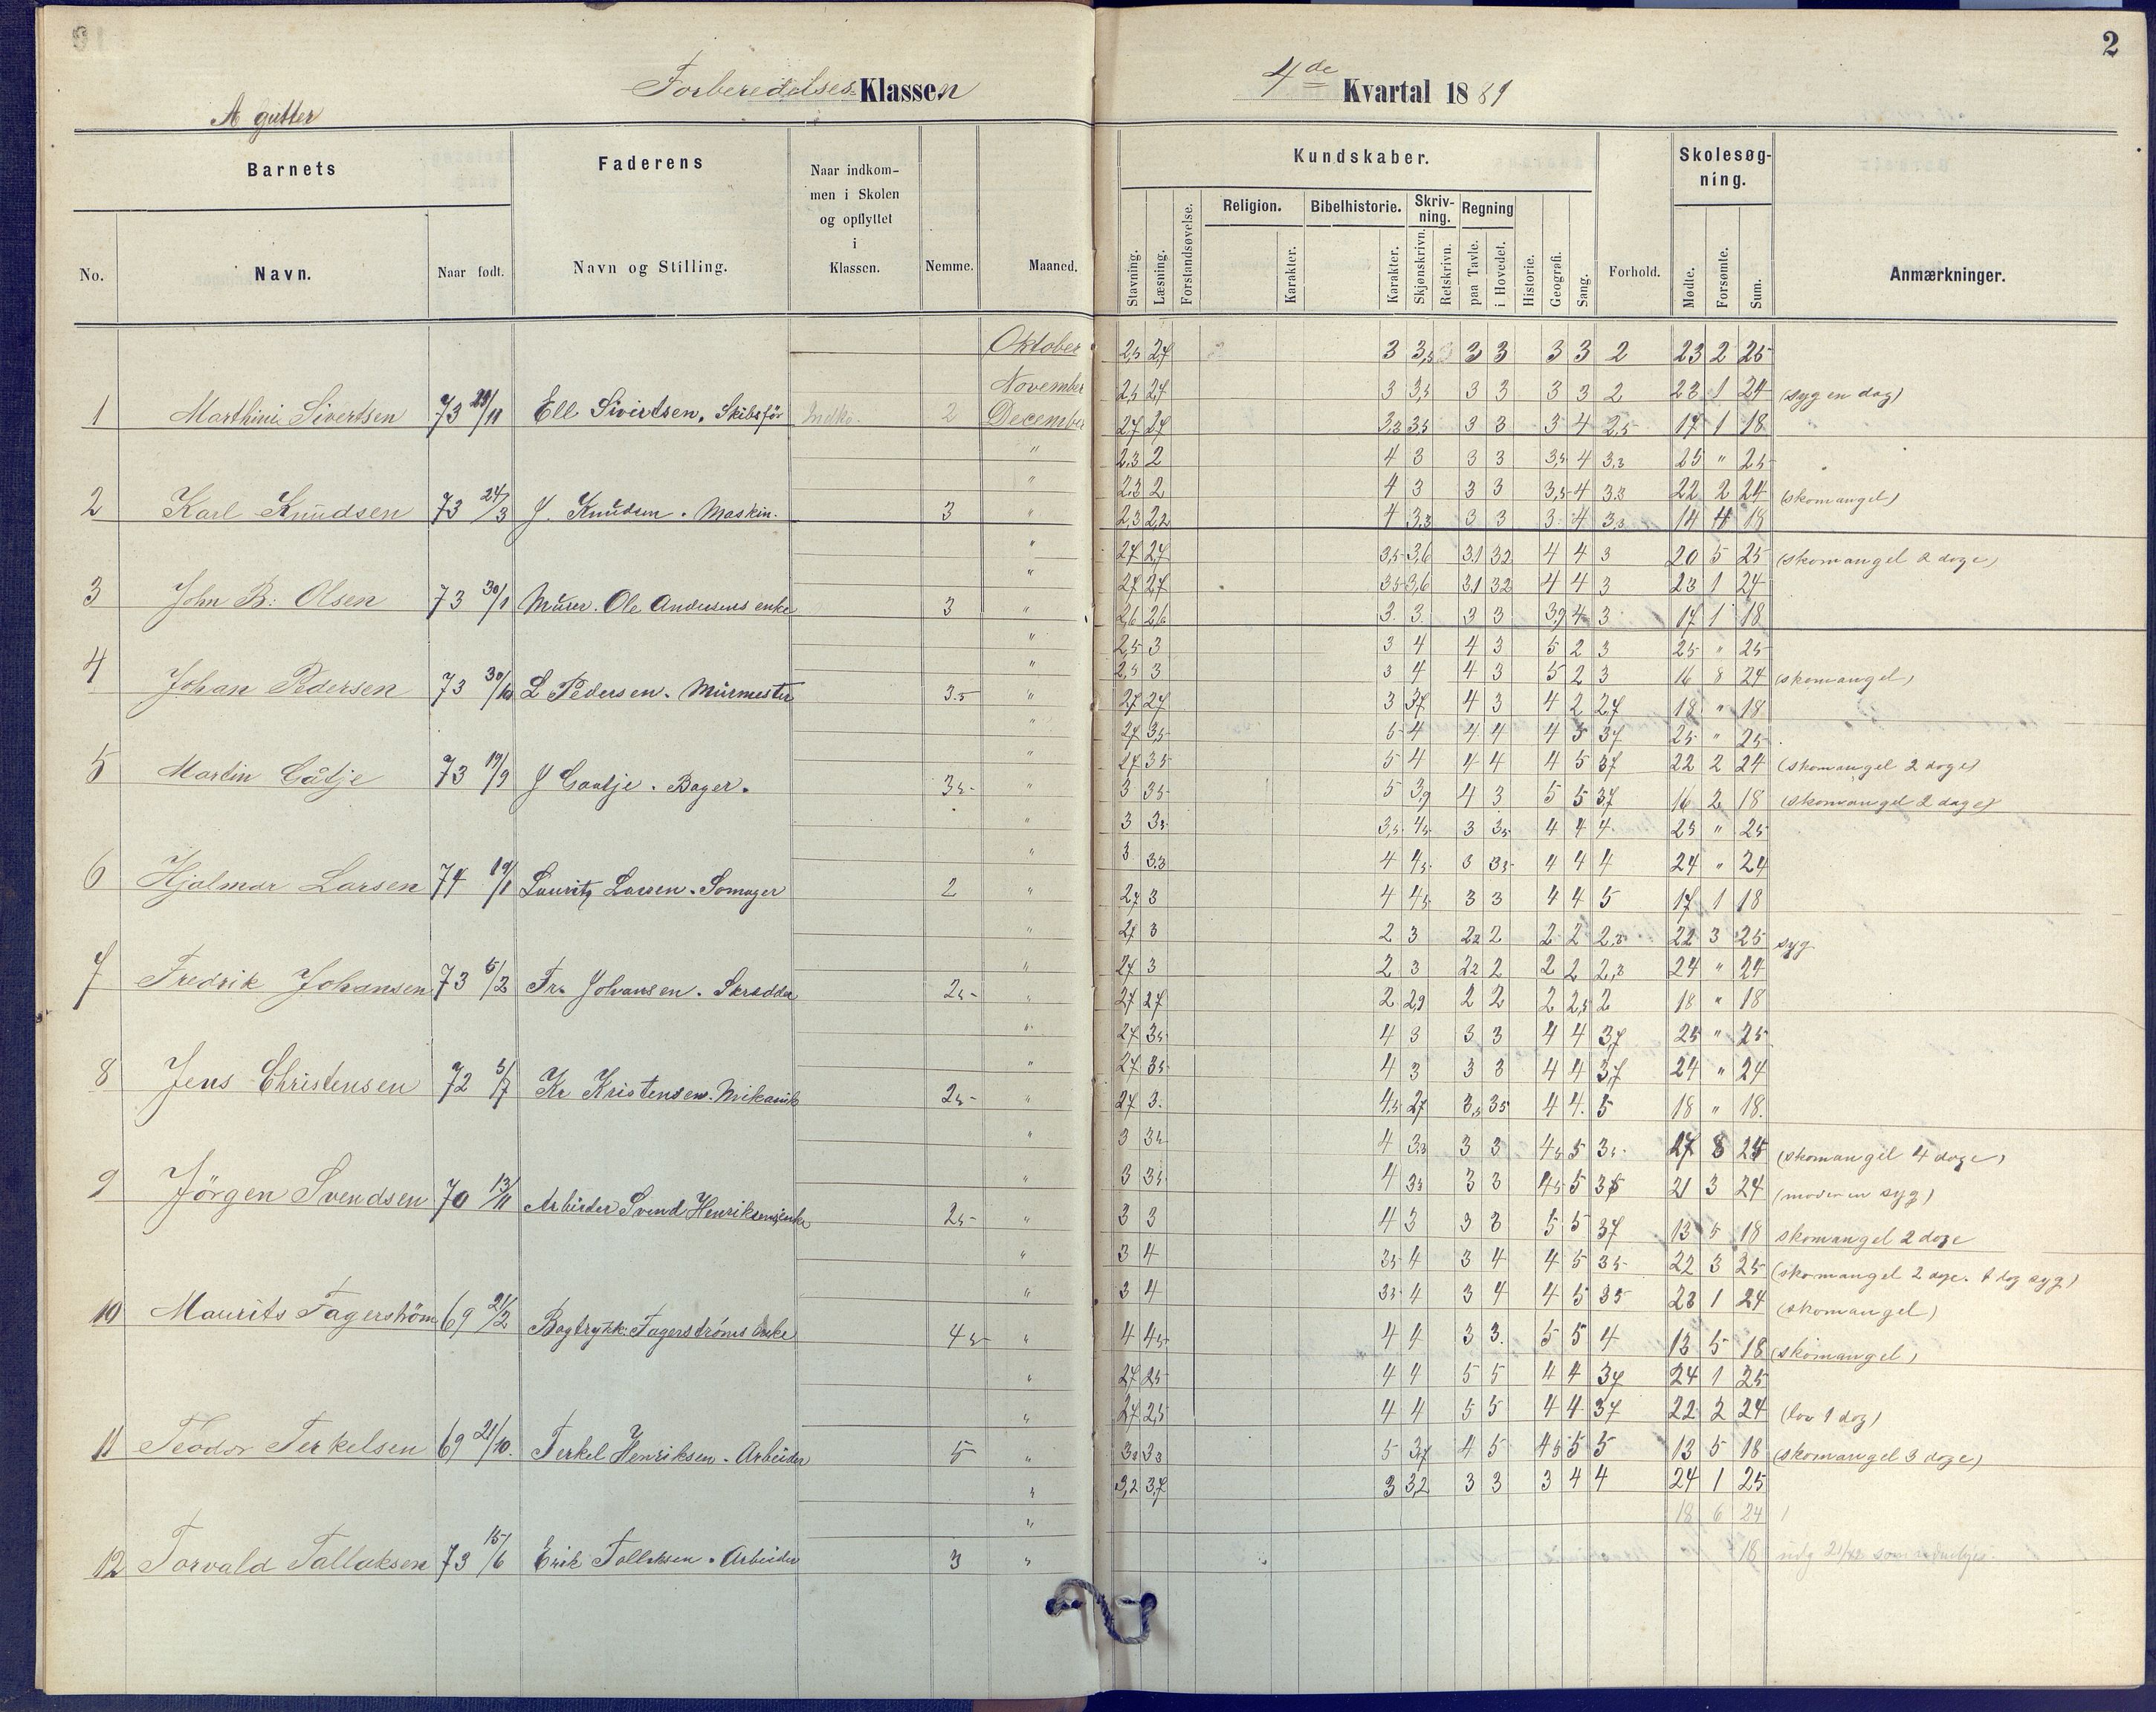 2
Forberedelses Klassen
4de Kvartal 1881
A gutter
Barnets
Faderens
Naar indkommen i Skolen og opflyttet i Klassen.
Nemme.
Maaned.
Kundskaber.
Forhold.
Skolesøgning.
Anmærkninger.
No.
Navn.
Naar født.
Navn og Stilling.
Stavning. Læsning. Forstandsøvelse. Religion. Karakter. Bibelhistorie. Karakter. Skrivning. Skjønskrivn. Retskrivn. Regning paa Tavle. i Hovedet. Historie. Geografi. Sang.
Mødte. Forsømte. Sum.
Oktober 2,5 2,7 3 3,5 3 3 3 3 2 23 2 25
November 2,5 2,7 3 3,5 3 3 3 3 2 23 1 24 (syg en dag)
1 Marthini Sivertsen 73 29/11 Ell Sivertsen. Skibsför Indko. 2 December 2,7 2,7 3,3 3,5 3 3 3 4 2,5 17 1 18
" 2,3 2 4 3 3 3 3,5 4 3,3 25 " 25
" 2,3 2 4 3 3 3 3,5 4 3,3 22 2 24 (skomangel)
2 Karl Knudsen 73 24/3 J. Knudsen. Maskin. 3 " 2,3 2,2 4 3,3 3 3 3 4 3,3 14 4 18
" 2,7 2,7 3,5 3,6 3,1 3,2 4 4 3 20 5 25 (skomangel 2 dage)
" 2,7 2,7 3,5 3,6 3,1 3,2 4 4 3 23 1 24
3 John B: Olsen 73 30/1 Murer. Ole Andersens enke 3 " 2,6 2,6 3 3 3 3 3,9 4 3 17 1 18
" 2,5 3 3 4 4 3 5 2 3 25 " 25
" 2,5 3 3 4 4 3 5 2 3 16 8 24 (skomangel)
4 Johan Pedersen 73 30/10 L Pedersen. Murmester 3.5 " 2,7 2,7 3 3,7 4 3 4 2 2,7 18 " 18
" 2,7 3,5 5 4 4 4 4 5 3,7 25 " 25
" 2,7 3,5 5 4 4 4 4 5 3,7 22 2 24 (skomangel 2 dage)
5 Martin Gåtje 73 19/9 J Gaatje. Bager. 35 " 3 3,5 5 3,9 4 3 5 5 3,7 16 2 18 (skomangel 2 dage)
" 3 3,5 3,5 4,5 3 3,5 4 4 4 25 " 25
" 3 3,3 4 4,5 3 3,5 4 4 4 24 " 24
6 Hjalmar Larsen 74 19/1 Lauritz Larsen. Somager 2 " 2,7 3 4 4,5 3 3 4 4 5 17 1 18
" 2,7 3 2 3 2,2 2 2 2 2,3 22 3 25 syg.
" 2,7 3 2 3 2,2 2 2 2 2,3 24 " 24
7 Fredrik Johansen 73 5/2 Fr. Johansen. Skrædder 25 " 2,7 2,7 2 2,9 2 2 2 2,5 2 18 " 18
" 2,7 3,5 4 3 3 3 4 4 3,7 25 " 25
" 2,7 3,5 4 3 3 3 4 4 3,7 24 " 24
8 Jens Christensen 72 3/7 Kr Kristensen. Mikanik 25 " 2,7 3. 4,5 2,7 3,5 3,5 4 4 5 18 " 18.
" 3 3,5 4 3,3 3 3 4,5 5 3,5 17 8 25 (skomangel 4 dage)
" 3 3,5 4 3,3 3 3 4,5 5 3,5 21 3 24 (moderen syg)
9 Jörgen Svendsen 70 13/11 Arbeider Svend Henriksens enke 25 " 3 3 4 3 3 3 5 5 3,7 13 5 18 skomangel 2 dage
" 3 4 3,5 4 3 4 4 5 3,5 22 3 25 (skomangel 2 dage. 1 dag syg)
" 3 4 3,5 4 3 4 4 5 3,5 23 1 24 (skomangel)
10 Maurits Fagerström 69 21/2 Bogtrykk: Fagerströms Enke 45 " 4 4,5 4 4 3 3. 5 5 4 13 5 18 (skomangel)
" 2,7 2,5 4 4 5 5 4 4 3,7 24 1 25
" 2,7 2,5 4 4 5 5 4 4 3,7 22 2 24 (lov 1 dag)
11 Teodor Terkelsen 69 21/10. Terkel Henriksen. Arbeider 5 " 3,3 3,3 5 3,7 4 5 4,5 5 5 13 5 18 (skomangel 3 dage)
" 3,2 3,7 3 3,2 3 3 3 4 4 24 1 25
" 18 6 24
12 Torvald Tallaksen 73 15/6 Erik Tollaksen. Arbeider 3 " 18 udg 21/12 som